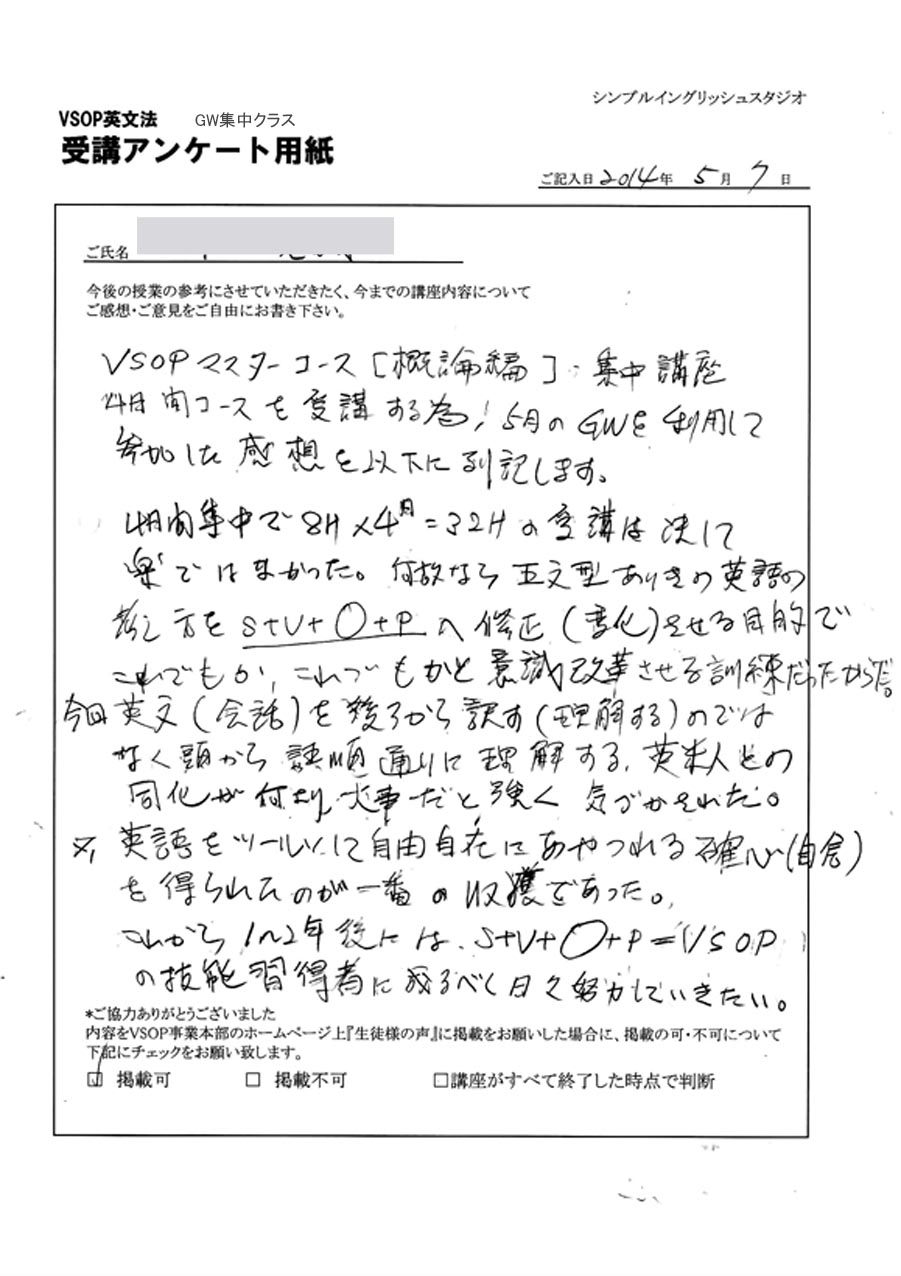 シンプルイングリッシュスタジオ
VSOP英文法 GW集中クラス
受講アンケート用紙
ご記入日 2014年 5月 7日
ご氏名
今後の授業の参考にさせていただきたく、今までの講座内容について
ご感想・ご意見をご自由にお書き下さい。
VSOPマスターコース[概論編]・集中講座
4日間コースを受講する為、5月のGWを利用して
参加した感想を以下に列記します。
4日間集中で8H×4日=32Hの受講は決して
楽ではなかった。何故なら五文型ありきの英語の
考え方をS+V+O+Pへ修正(変化)させる目的で
これでもか、これでもかと意識改革させる訓練だったからだ。
今回英文(会話)を後ろから訳す(理解する)のでは
なく頭から語順通りに理解する、英米人との
同化が何より大事だと強く気づかされた。
又、英語をツールとして自由自在にあやつれる確心(自信)
を得られたのが一番の収獲であった。
これから1〜2年後には、S+V+O+P=VSOP
の技能習得者に成るべく日々努力していきたい。
*ご協力ありがとうございました
内容をVSOP事業本部のホームページ上『生徒様の声』に掲載をお願いした場合に、掲載の可・不可について
下記にチェックをお願い致します。
☑ 掲載可 □ 掲載不可 □講座がすべて終了した時点で判断